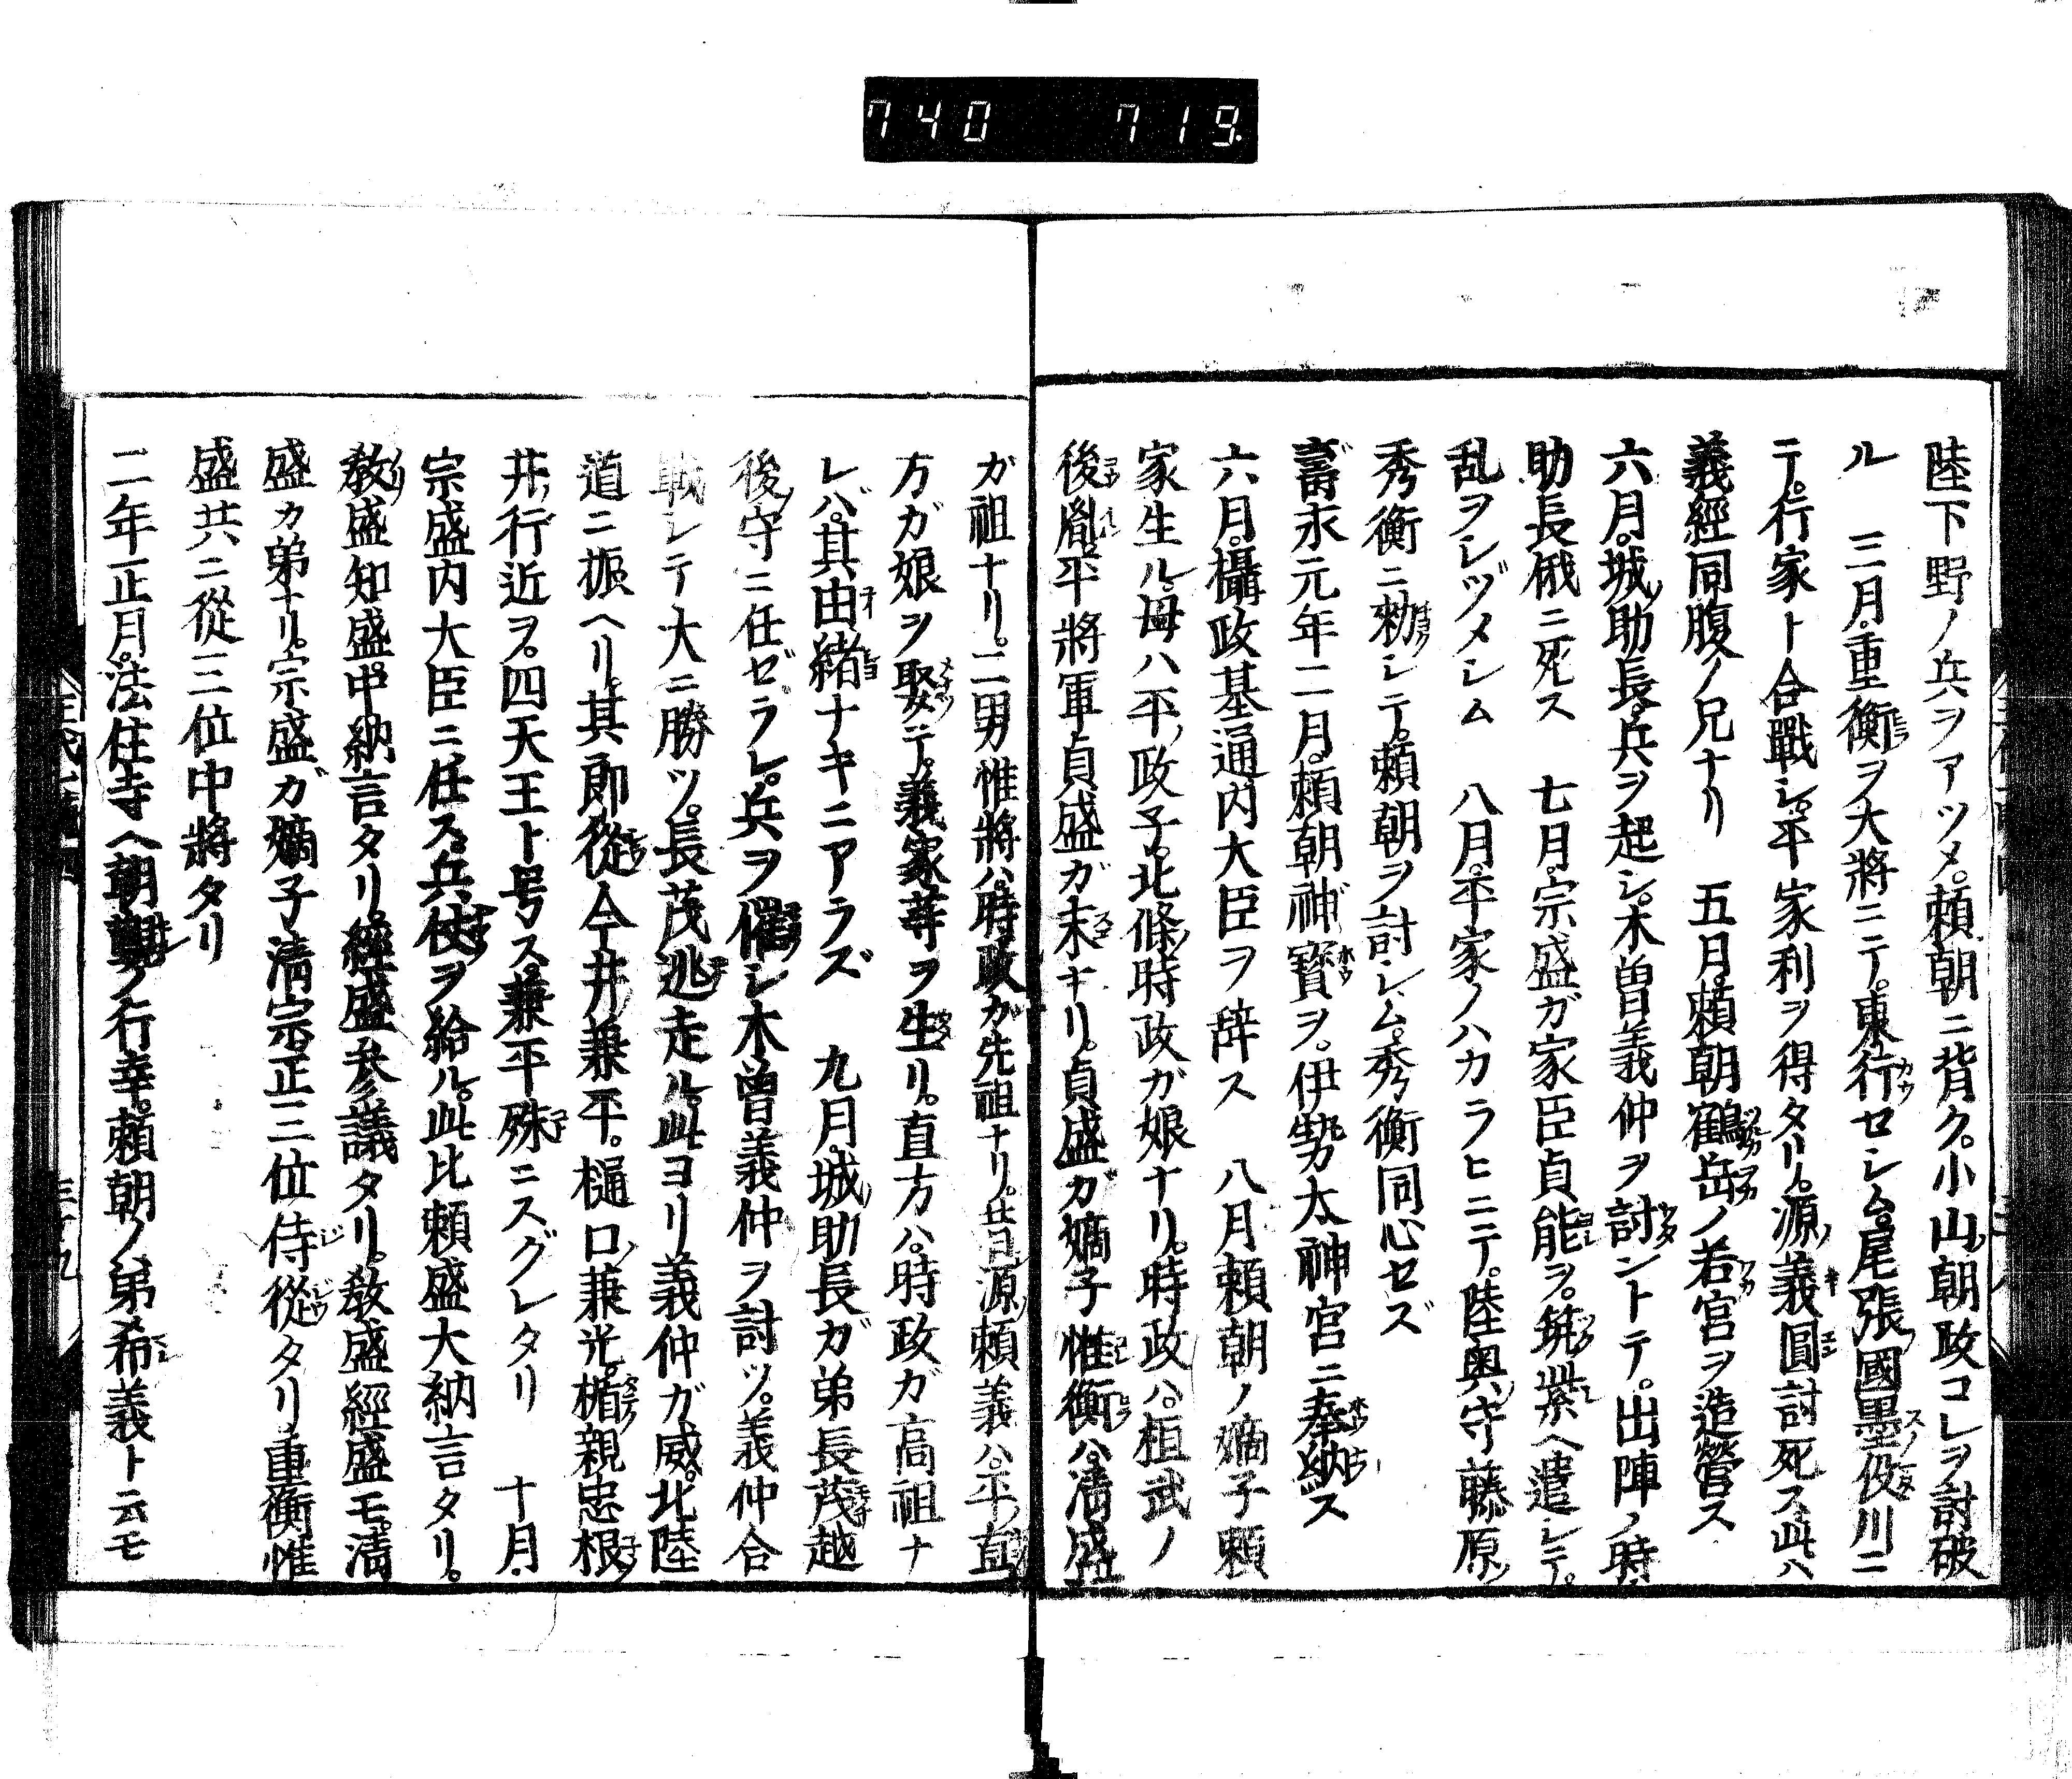 740 719.
陸下野ノ兵ヲアツメ。頼朝ニ背ク。小山朝政コレヲ討破
ル 三月。重衡ヲ大將ニテ。東行セシム。尾張國墨俣川ニ
テ。行家ト合戰シ。平家利ヲ得タリ。源義圓討死ス。此ハ
義經同腹ノ兄ナリ 五月。頼朝鶴岳ノ若宮ヲ造營ス
六月。城助長。兵ヲ起シ。木曽義仲ヲ討ントテ。出陣ノ時。
助長俄ニ死ス 七月。宗盛ガ家臣貞能ヲ。筑紫ヘ遣シテ。
乱ヲシヅメシム 八月。平家ノハカラヒニテ。陸奥守藤原
秀衡ニ勅シテ。頼朝ヲ討シム。秀衡同心セズ
壽永元年二月。頼朝神寳ヲ。伊勢太神宮ニ奉納ス
六月。攝政基通内大臣ヲ辞ス 八月頼朝ノ嫡子頼
家生ル。母ハ平政子。北條時政ガ娘ナリ。時政ハ。桓武ノ
後胤。平將軍貞盛ガ末ナリ。貞盛ガ嫡子惟衡ハ。清盛
ガ祖ナリ。二男惟將ハ。時政ガ先祖ナリ。昔日源頼義ハ。平直
方ガ娘ヲ娶テ。義家等ヲ生リ。直方ハ。時政ガ高祖ナ
レバ。其由緒ナキニアラズ 九月。城助長ガ弟長茂越
後守ニ任ゼラレ。兵ヲ催シ木曽義仲ヲ討ツ。義仲合
戰シテ大ニ勝ツ。長茂逃走ル。此ヨリ義仲ガ威。北陸
道ニ振ヘリ。其郎從今井兼平。樋口兼光。楯親忠根
井行近ヲ。四天王ト号ス。兼平殊ニスグレタリ 十月。
宗盛内大臣ニ任ス。兵仗ヲ給ル。此比頼盛大納言タリ。
教盛知盛。中納言タリ。經盛参議タリ。教盛經盛モ。清
盛カ弟ナリ。宗盛ガ嫡子清宗。正三位侍從タリ。重衡惟
盛共ニ從三位中將タリ
二年正月。法住寺ヘ朝覲ノ行幸。頼朝ノ弟希義ト云モ